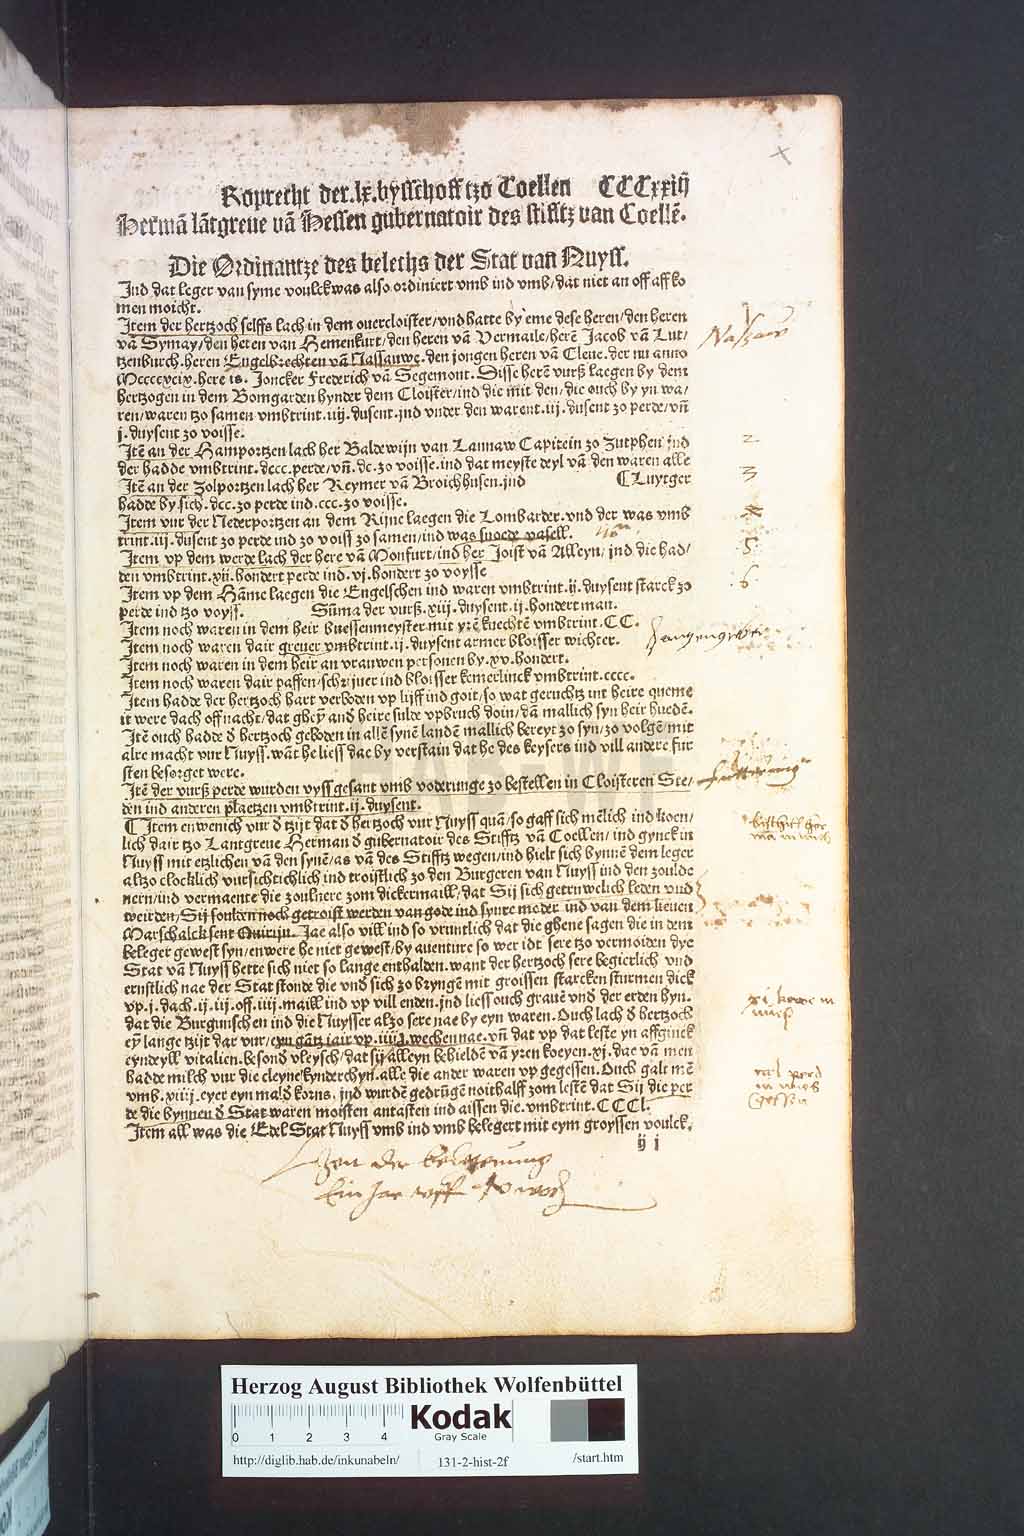 Roprecht der .lx. bysschoff tzo Coellen CCCxxiij
Hermā lātgreue vā Hessen gubernatoir des stifftz van Coellē.
Die Ordinantze des belechs der Stat van Nuyss.
Jnd dat leger van syme voulck was also ordiniert vmb ind vmb/dat niet an off aff ko
men moicht.
Item der hertzoch selffs lach in dem ouercloister/vnd hatte by eme dese heren/den heren
vā Symay/den heren van Hemenkurt/den heren vā Vermaile/herē Jacob vā Lut/
tzenburch.heren Engelbrechten vā Nassauwe.den jongen heren vā Cleue.der nu anno
Mccccxcix.here is. Joncker Frederich vā Segemont. Disse herē vurß laegen by dem
hertzogen in dem Bomgarden hynder dem Cloister/ind die mit den/die ouch by yn wa/
ren/waren tzo samen vmbtrint.iiij.dusent.jnd vnder den warent.iij.dusent zo perde/vn̄
j.duysent zo voisse.
Itē an der Hamportzen lach her Baldewijn van Lannaw Capitein zo Zutphen jnd
der hadde vmbtrint.dccc.perde/vn̄.dc.zo voisse.ind dat meyste deyl vā den waren alle
Itē an der Zolportzen lach her Reymer vā Broichhusen.jnd ¶Luytger
hadde by sich.dcc.zo perde ind.ccc.zo voisse.
Item vur der Nederportzen an dem Rijne laegen die Lombarder.vnd der was vmb
trint.iij.dusent zo perde ind zo voiss zo samen/ind was snoede vasell.
Item vp dem werde lach der here vā Monfurt/ind her Joist vā Alleyn/jnd die had/
den vmbtrint.xij.hondert perde ind.vj.hondert zo voysse
Item vp dem Hāme laegen die Engelschen ind waren vmbtrint.ij.duysent starck zo
perde ind tzo voyss. Sūma der vurß.xiij.duysent.ij.hondert man.
Item noch waren in dem heir buessenmeyster mit yrē knechtē vmbtrint.CC.
Item noch waren dair greuer vmbtrint.ij.duysent armer bloisser wichter.
Item noch waren in dem heir an vrauwen personen by.xv.hondert.
Item noch waren dair paffen/schrijuer ind bloisser kemerlinck vmbtrint.cccc.
Item hadde der hertzoch hart verboden vp lijff ind goit/so wat geruchtz int heire queme
it were dach off nacht/dat gheȳ and heire sulde vpbruch doin/dā mallich syn heir huedē.
Itē ouch hadde d hertzoch geboden in allē synē landē mallich bereyt zo syn/zo volgē/mit
alre macht vur Nuyss.wāt he liess dae by verstain dat he des keysers ind vill andere fur
sten besorget were.
Itē der vurß perde wurden vyss gesant vmb voderunge zo bestellen in Cloisteren Ste/
den ind anderen plaetzen vmbtrint.ij.duysent.
¶ Item en wenich vur d tzijt dat d hertzoch vur Nuyss quā/so gaff sich mēlich ind koen/
lich dair tzo Lantgreue Herman d gubernatoir des Stifftz vā Coellen/ind gynck in
Nuyss mit etzlichen vā den synē/as vā des Stifftz wegen/ind hielt sich bynnē dem leger
altzo clocklich vursichtichlich ind troistlich zo den Burgeren van Nuyss ind den zoulde
nern/ind vermaente die zoulnere zom dickermaill/dat Sij sich getruwelich leden vnd
weirden/Sij soulden noch getroist werden van gode ind synre moder ind van dem heuen
Marschalck sent Quirijn. Jae also vill ind so vruntlich dat die ghene sagen die in dem
beleger gewest syn/en were he niet gewest/by auenture so wer idt sere tzo vermoiden dye
Stat vā Nuyss hette sich niet so lange enthalden.want der hertzoch sere begierlich vnd
ernstlich nae der Stat stonde die vnd sich zo brengē mit groissen starcken sturmen dick
vp.j.dach.ij.iij.off.iiij.maill ind vp vill enden.jnd liess ouch grauē vnd der erden hyn.
dat die Burgunischen ind die Nuysser alzo sere nae by eyn waren. Ouch lach d hertzoch
eȳ lange tzijt dar vur/eyn gātz iair vp.iiij.wechen nae.vn̄ dat vp dat leste yn affginck
eyndeyll vitalien.besond vleysch/dat sij alleyn behieldē vā yren koeyen.xj.dae vā men
hadde milch vur die cleyne kynderchyn.alle die ander waren vp gegessen. Ouch galt mē
vmb.xiiij.eyer eyn mald korns. jnd wurdē gedrūgē noithalff zom lestē dat Sij die per
de die bynnen d Stat waren moisten antasten ind aissen die.vmbtrint.CCCl.
Item all was die Edel Stat Nuyss vmb ind vmb belegert mit eym groyssen voulck.
ij j
2
3
5
6
Zeit der belegerung
Ein Jar
Herzog August Bibliothek Wolfenbüttel
0 1 2 3 4
Kodak
Gray Scale
http://diglib.hab.de/inkunabeln/ 131-2-hist-2f /start.htm
HAB-WF